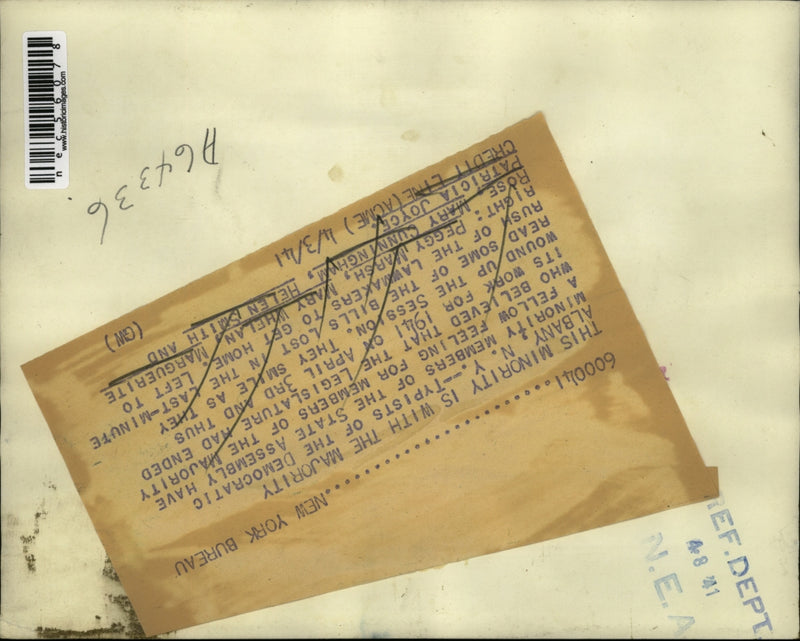 600041.......................NEW YORK BUREAU
THIS MINORITY IS WITH THE MAJORITY
ALBANY, N. Y.--TYPISTS OF THE DEMOCRATIC
MINORITY MEMBERS OF THE STATE ASSEMBLY HAVE
A FELLOW FEELING FOR THE MEMBERS OF THE MAJORITY
WHO BELIEVED THAT THE LEGISLATURE HAD ENDED
ITS WORK FOR 1941 ON APRIL 3RD AND THUS
WOUND UP THE SESSION. THEY SMILE AS THEY
READ SOME OF THE BILLS LOST IN THE LAST-MINUTE
RUSH OF THE LAWMAKERS TO GET HOME LEFT TO
RIGHT: PEGGY MARSH, GABY WHELAN, MARGUERITE
ROSE MARY CUNNINGHAM, HELEN SMITH AND
PATRICIA JOYCE
CREDIT LINE (ACME) 4/3/41 (GW)
A64336
nec56078
www.historicimages.com
REF. DEPT
4-8 '41
N. E. A